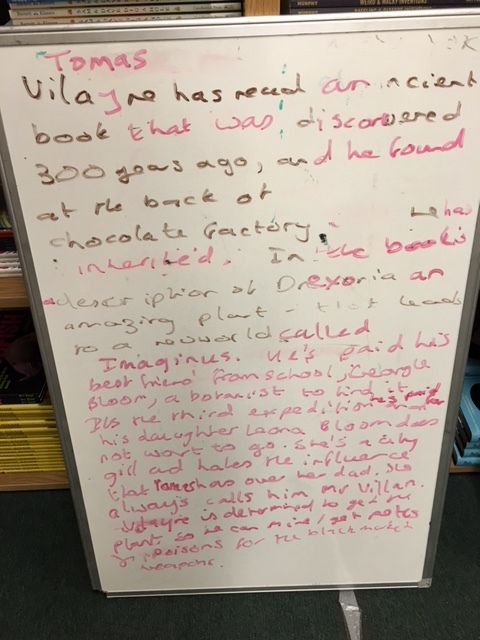 Tomas
Vilayne has read an ncient
book that was discovered
300 years ago, and he found
at the back of
chocolate factory. he has
inherited. In the book is
a description of Drexoria an
amazing plant - that leads
to a new world called
Imaginus. He's paid his
best friend from school, George
Bloom, a botanist to find it
But the third expedition he's paid
his daughter Leona Bloom does
not want to go. She's a city
girl and hates the influence
that Tomas has over her dad. She
always calls him Mr Villan.
Vilayne is determined to get the
plant so he can mine / get
poisons for the black market
weapons.